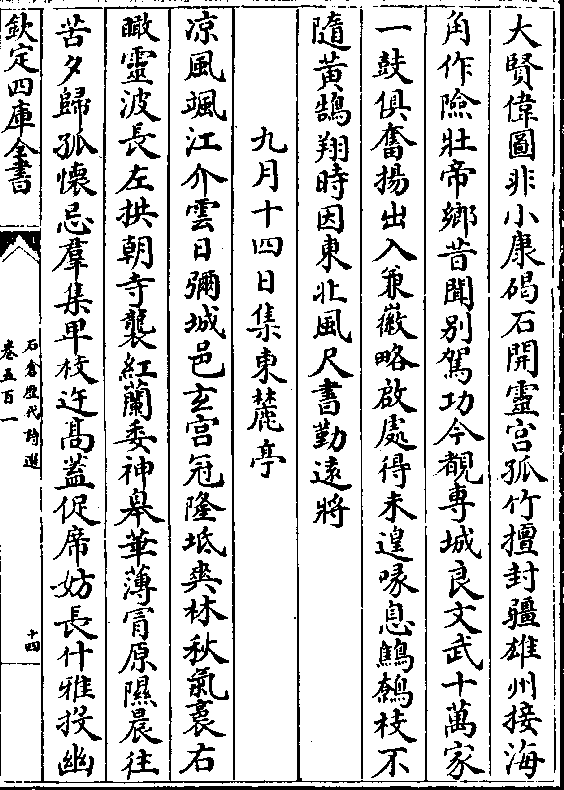 大賢偉圖非小康碣石開靈宫孤竹擅封疆雄州接海
角作險壯帝鄉昔聞别駕功今覩専城良文武十萬家
一鼓俱奮揚出入兼徽略啟處得未遑喙息鷦鷯枝不
隨黄鵠翔時因東北風尺書勤逺將
九月十四日集東麓亭
凉風颯江介雲日彌城邑玄宫冠隆坻爽林秋氣裛右
瞰靈波長左拱朝寺襲紅蘭委神皐華薄霄原隰晨往
苦夕歸孤懷忌羣集甲校迕髙蓋促席妨長什雅投幽
欽定四庫全書
石倉歴代詩選
卷五百一
十四